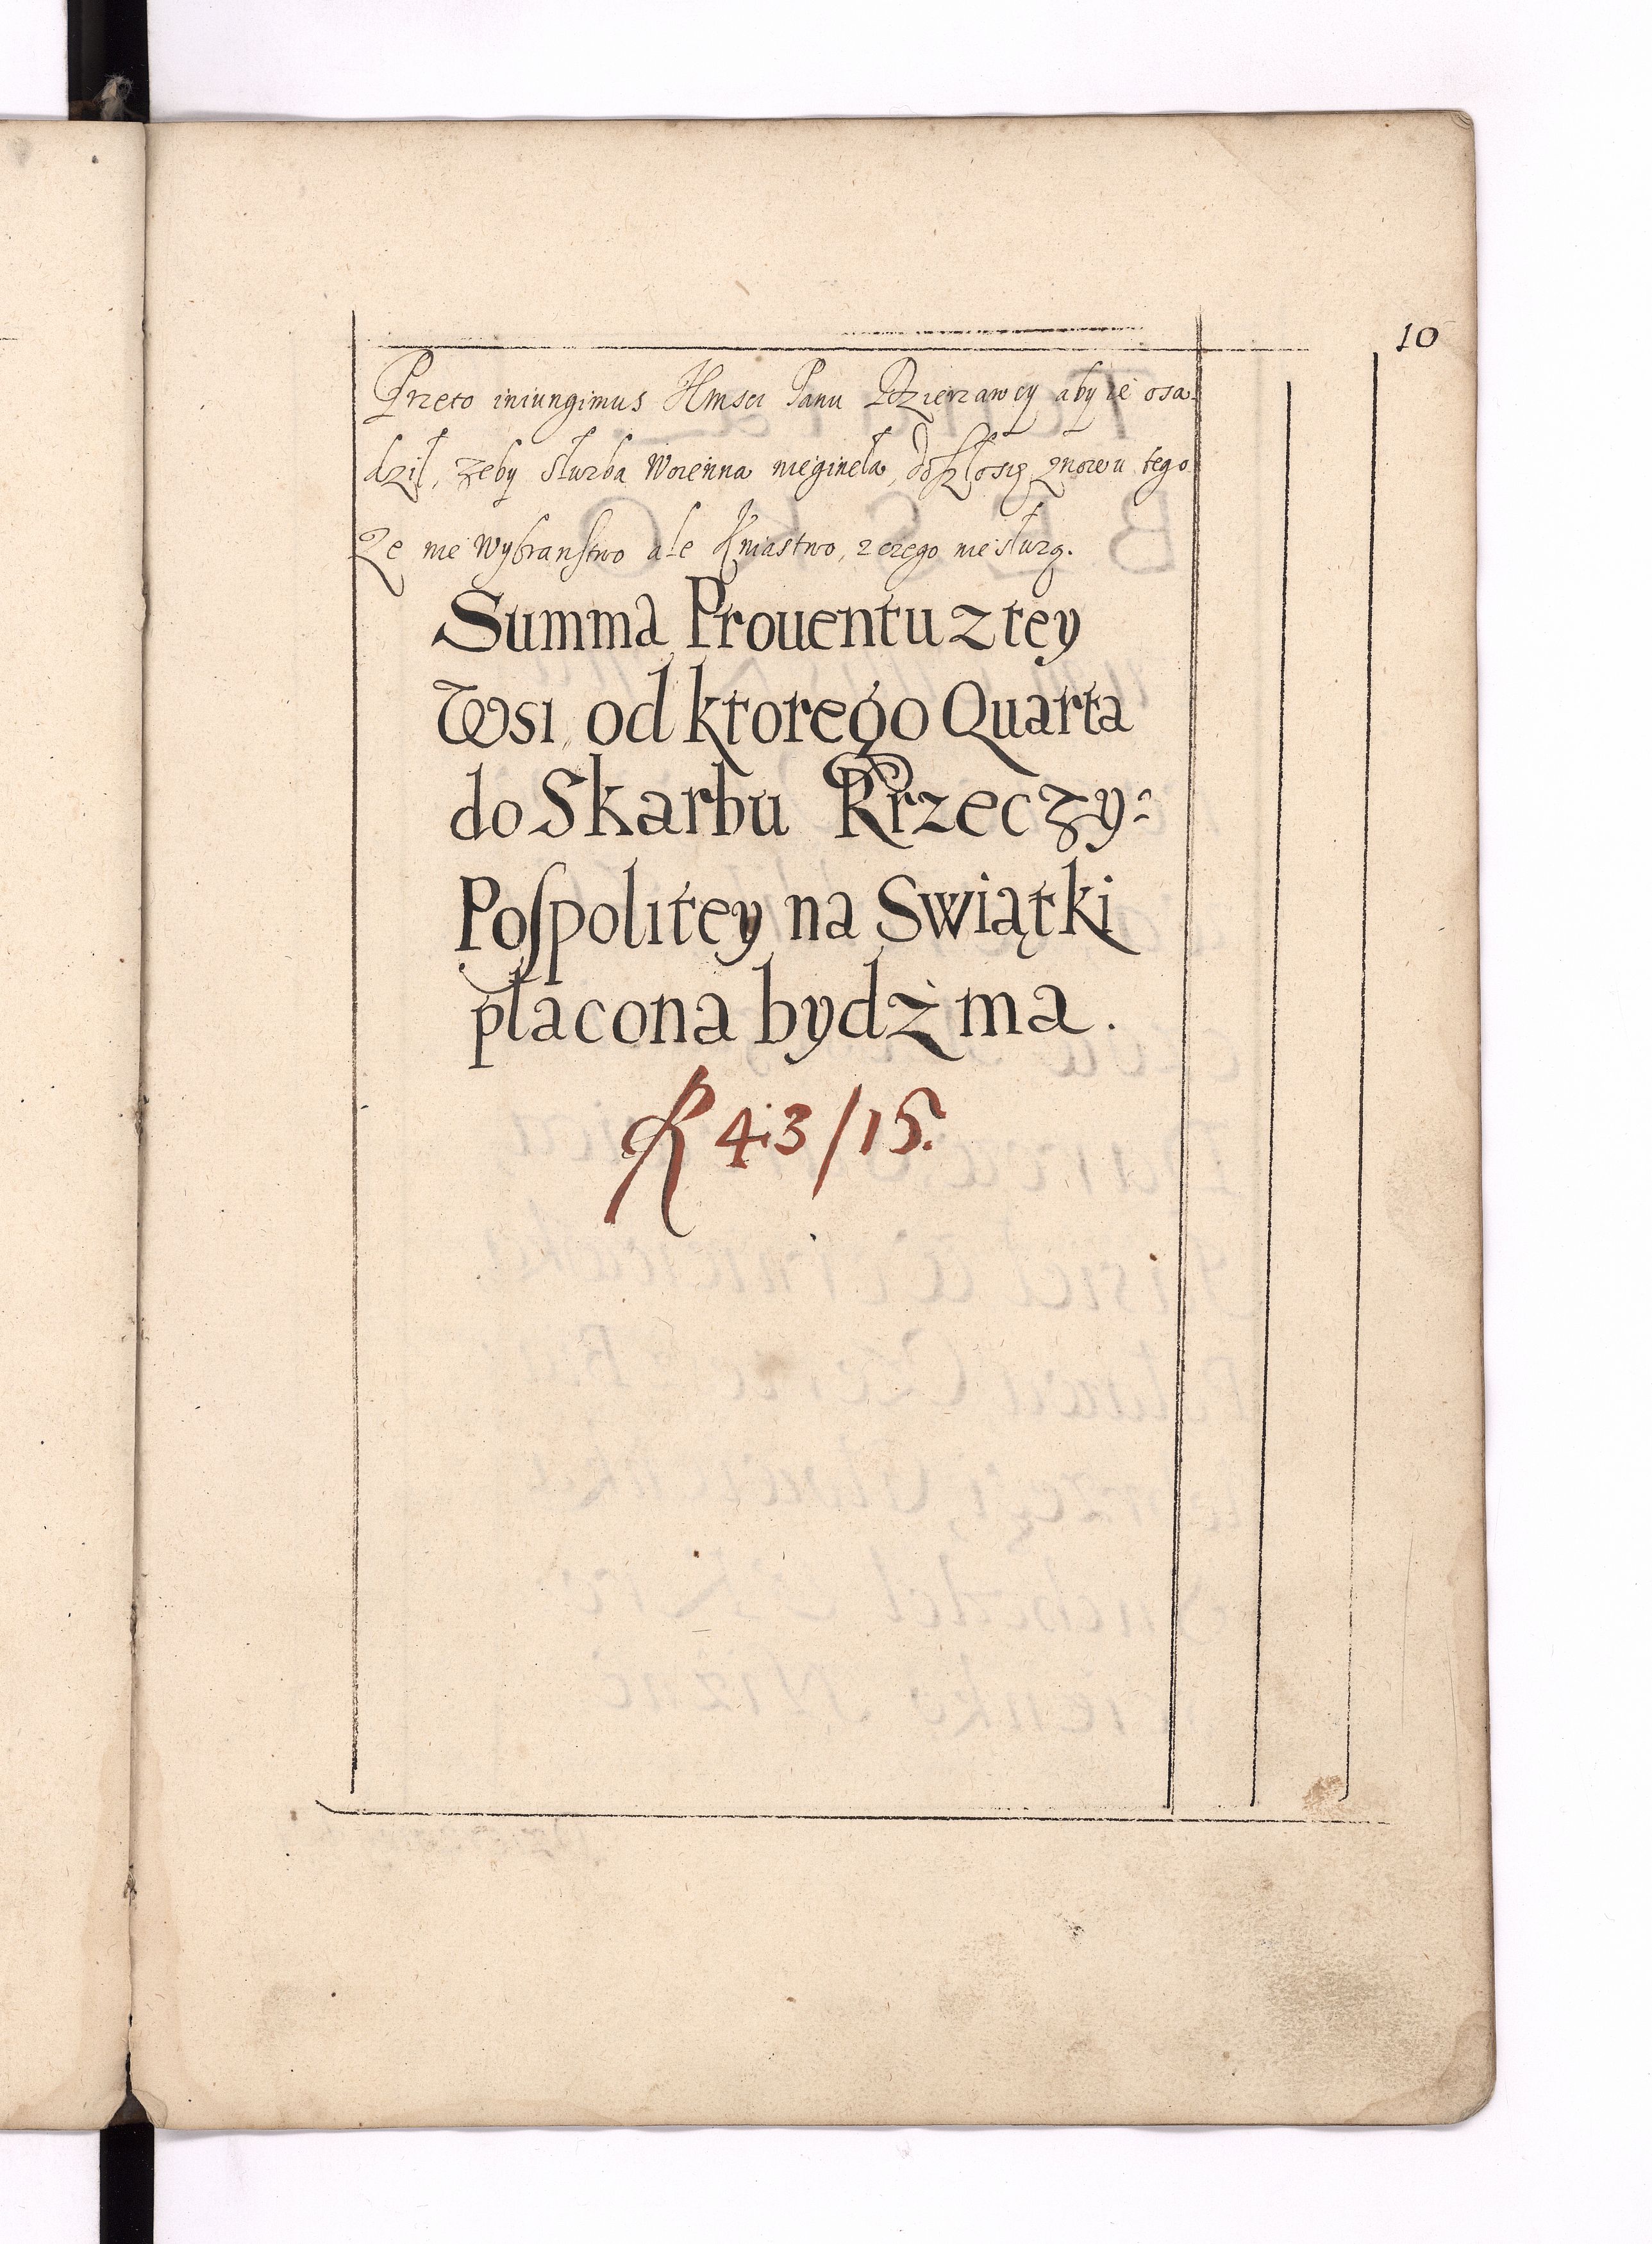 10
Przeto iniungimus Jmsci Panu Dzierzawcy aby ie osa-
dził, żeby służba Woienna nieginęła, doszłosię znowu tego
że nie Wybranstwo ale Kniastwo, z czego niesłużą.
Summa Prouentu z tey
Wsi, od ktorego Quarta
do Skarbu Rzeczy:
Pospolitey na Swiątki
płacona bydź ma.
R 43/15.